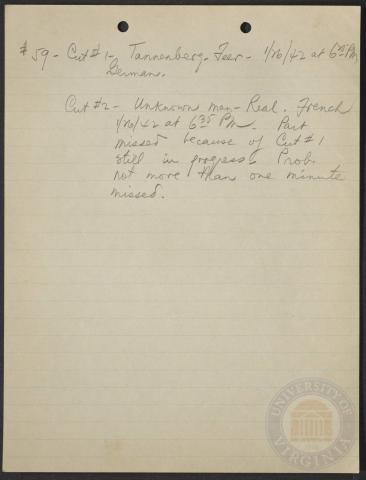 #59 - Cut #1 - Tannenberg - Feer - 1/26/42 at 6 25 PM
German.
Cut #2 - Unknown man - Real. French
1/26/42 at 6 35 PM. Part
missed because of Cut #1
still in progress. Prob.
not more than one minute
missed.
UNIVERSITY OF VIRGINIA